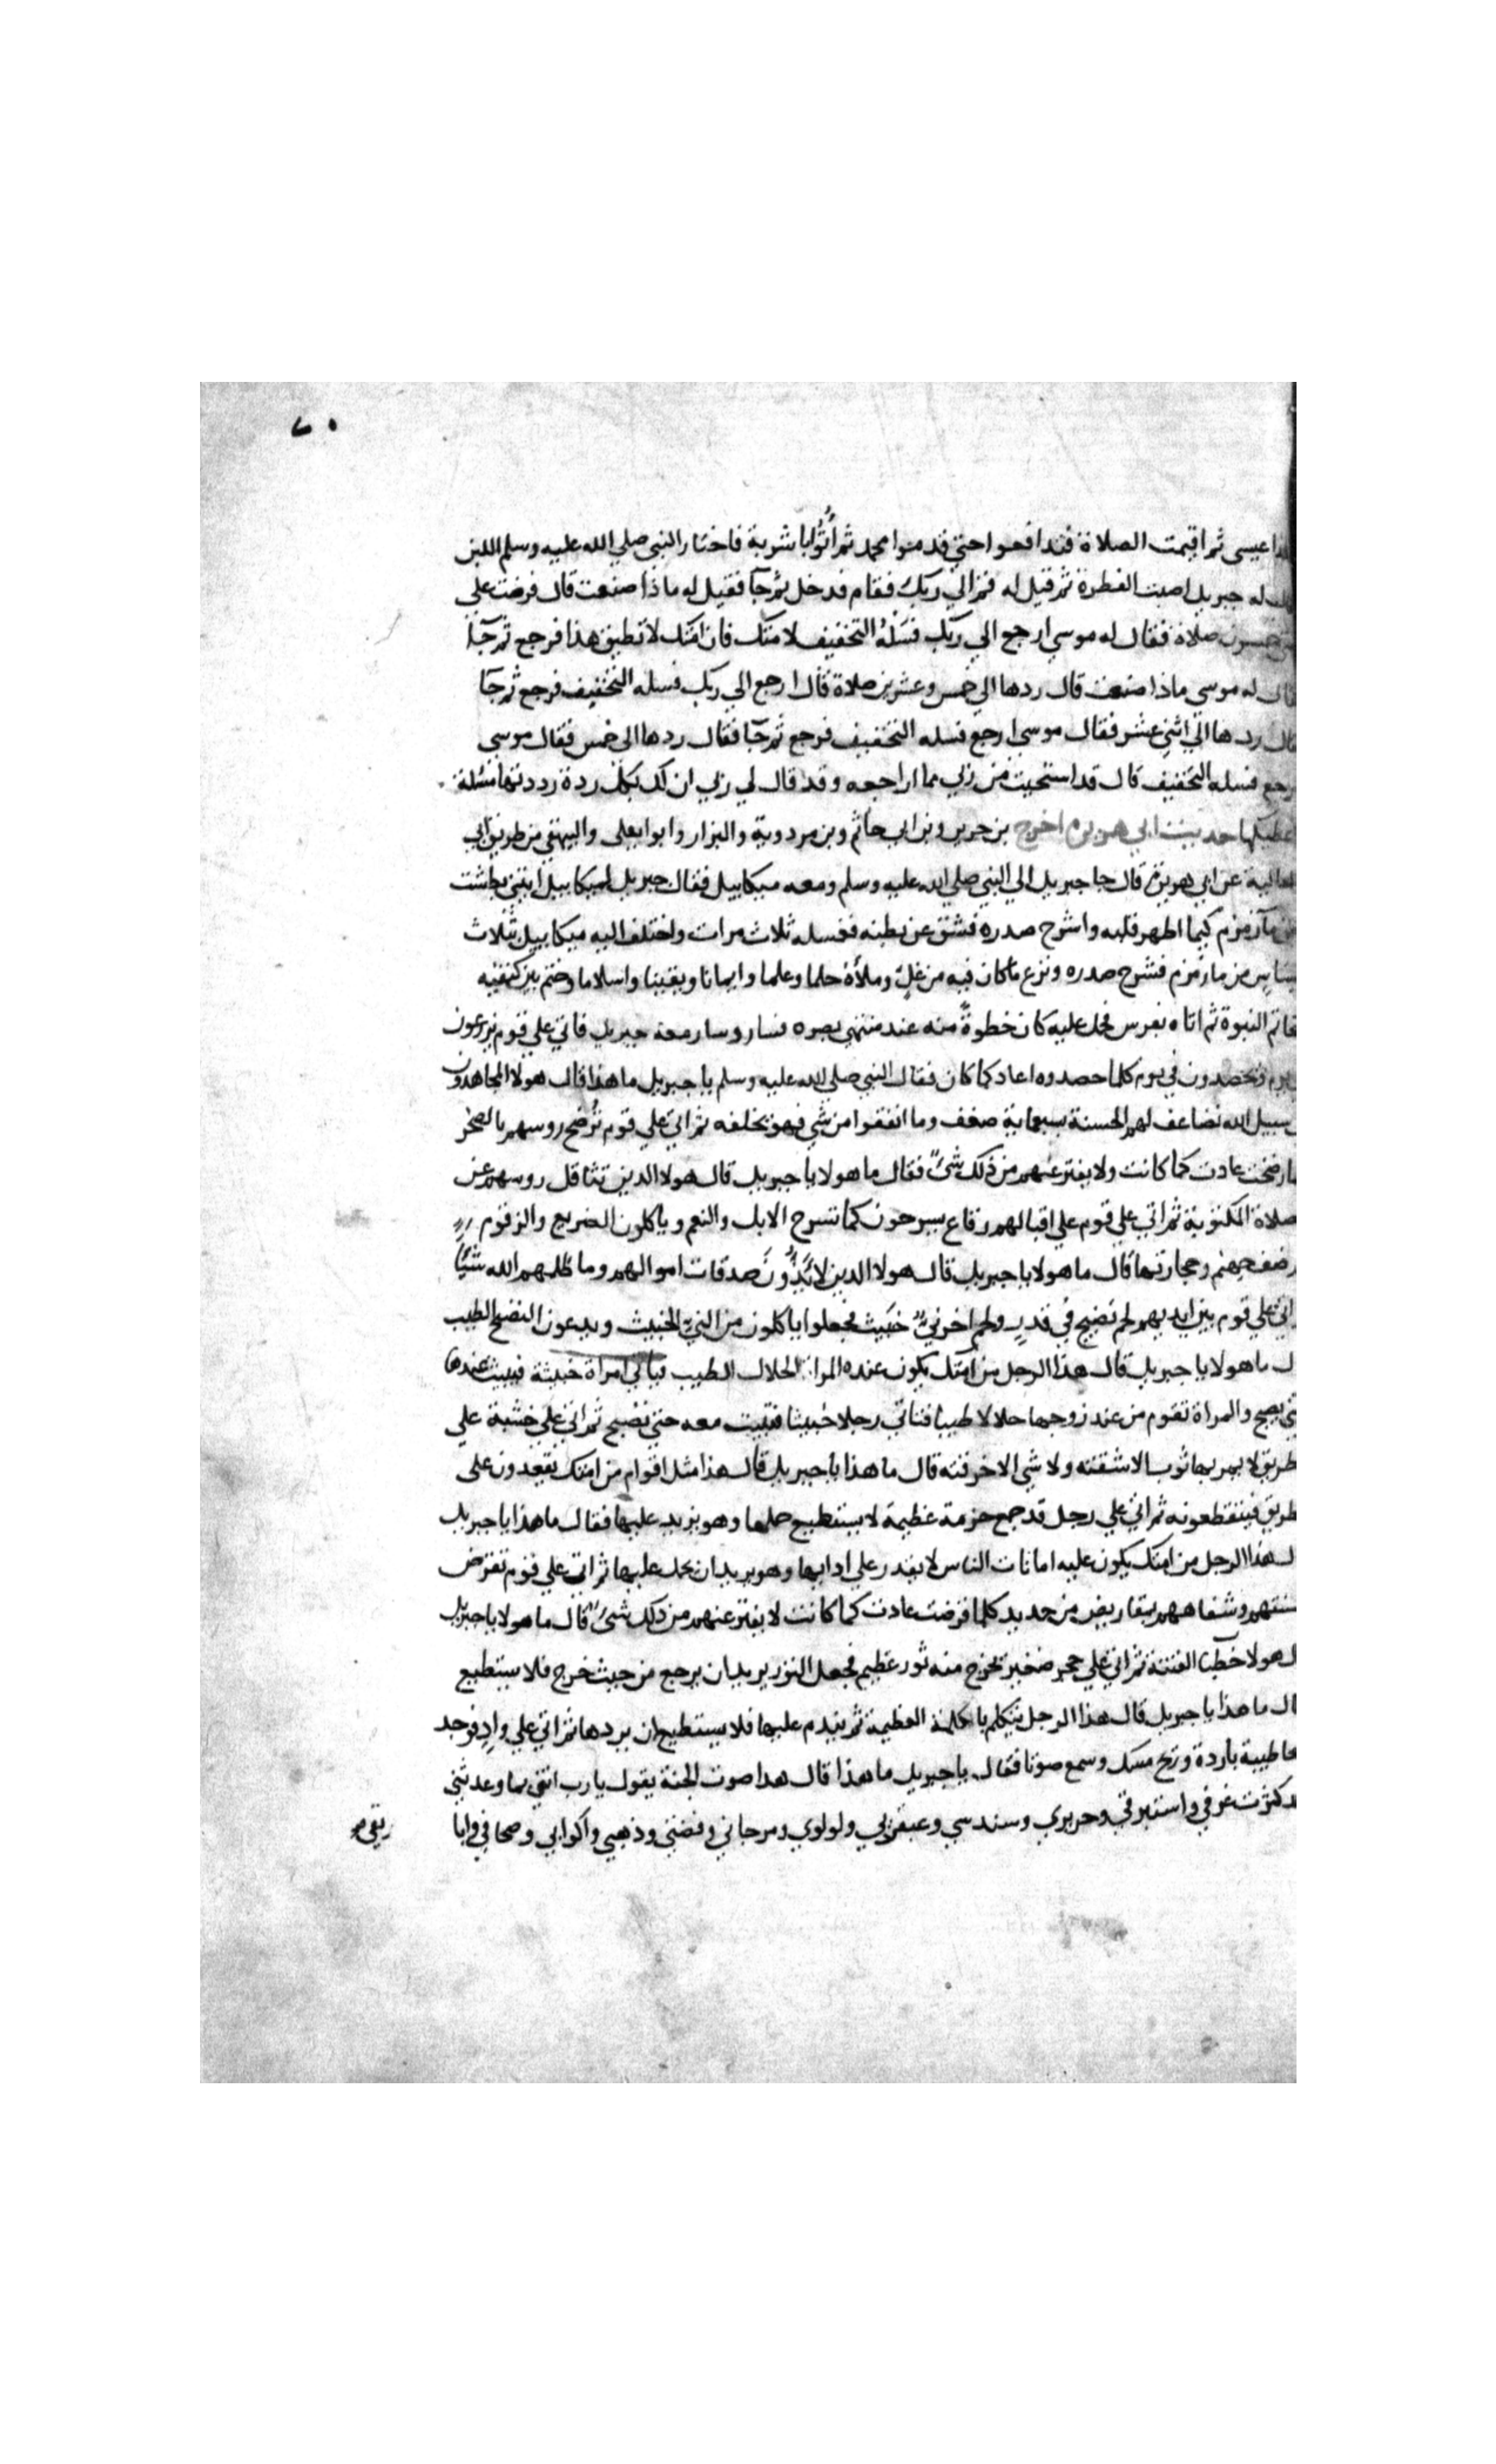 ٧٠
عيسى ثم اقيمت الصلاة فتدافعوا حتي قدموا محمد ثم أُتُوا باشربة فاختار النبي صلي الله عليه وسلم اللبن
له جبريل اصبت الفطرة ثم قيل له قم الي ربك فقام فدخل ثم جآ فقيل له ماذا صنعت قال فرضت علي
خمسون صلاة فقال له موسي ارجع الي ربك فسَلْهُ التخفيف لامتك فان امتك لا تطيق هذا فرجع ثم جآ
له موسي ماذا صنعت قال ردها الي خمس وعشرين صلاة قال ارجع الي ربك فسله التخفيف فرجع ثم جآ
ردها الي اثني عشر فقال موسي ارجع فسله التخفيف فرجع ثم جآ فقال ردها الي خمس فقال موسي
فسله التخفيف قال قد استحيت من ربي مما اراجعه وقد قال لي ربي ان لك بكل ردة رددتها مسئلة
حديث ابي هريرة اخرج بن جرير وبن ابي حاتم وبن مردوية والبزار وابو يعلى والبيهقي من طريق ابي
العالية عن ابي هريرة قال جا جبريل الي النبي صلي الله عليه وسلم ومعه ميكاييل فقال جبريل لميكاييل ايتني بطشت
من مآ زمزم كيما اطهر قلبه واشرح صدره فشق عن بطنه فغسله ثلاث مرات واختلف اليه ميكاييل بثلاث
من ما زمزم فشرح صدره ونزع ما كان فيه من غل وملأه حلما وعلما وايمانا ويقينا واسلاما وختم بين كتفيه
النبوة ثم اتاه بفرس فحمل عليه كان خطوةً منه عند منتهي بصره فسار وسار معه جبريل فاتي علي قوم يزرعون
ويحصدون في يوم كلما حصدوه اعاد كما كان فقال النبي صلي الله عليه وسلم يا جبريل ما هذا قال هولا المجاهدون
سبيل الله تضاعف لهم الحسنة بسبعماية ضعف وما انفقوا من شي فهو يخلفه ثم اتي علي قوم تُرضخ روسهم بالصخر
رضخت عادت كما كانت ولا يفتر عنهم من ذلك شئٌ فقال ما هولا يا جبريل قال هولا الذين تثاقل روسهم عن
الصلاة المكتوبة ثم اتي علي قوم علي اقبالهم رقاع يسرحون كما تسرح الابل والنعم وياكلون الضريع والزقوم
ورضف جهنم وحجارتها قال ما هولا يا جبريل قال هولا الذين لا يُؤَدُّونَ صدقات اموالهم وما ظلمهم الله شيًا
اتي علي قوم بين ايديهم لحم نضيج في قدرٍ ولحم اخر نيٌّ خبيث فجعلوا ياكلون من النيِّ الخبيث ويدعون النضيج الطيب
ما هولا يا جبريل قال هذا الرجل من امتك يكون عنده المراة الحلال الطيب فياتي امراة خبيثة فيبيت عندها
يصبح والمراة تقوم من عند زوجها حلالا طيبا فتاتي رجلا خبيثا فتبيت معه حتي تصبح ثم اتي علي خشبة علي
الطريق لا يمر بها ثوب الا شقته ولا شي الا خرقته قال ما هذا يا جبريل قال هذا مثل اقوام من امتك يقعدون علي
الطريق فيتقطعونه ثم اتي علي رجل قد جمع حزمة عظيمة لا يستطيع حملها وهو يزيد عليها فقال ما هذا يا جبريل
هذا الرجل من امتك يكون عليه امانات الناس لا يقدر علي ادايها وهو يريد ان يحمل عليها ثم اتي علي قوم تقرض
وشفاههم بمقاريض من حديد كلما قرضت عادت كما كانت لا يفتر عنهم من ذلك شئٌ قال ما هولا يا جبريل
هولا خطبآ الفتنة ثم اتي علي حجر صغير يخرج منه ثور عظيم فجعل الثور يريد ان يرجع من حيث خرج فلا يستطيع
ما هذا يا جبريل قال هذا الرجل يتكلم بالكلمة العظيمة ثم يندم عليها فلا يستطيع ان يردها ثم اتي علي وادٍ فوجد
طيبة باردة وريح مسك وسمع صوتا فقال يا جبريل ما هذا قال هذا صوت الجنة يقول يا رب اتني بما وعدتني
كثرت غرفي واستبرقي وحريري وسندسي وعبقريي ولولوي ومرجاني وفضتي وذهبي واكوابي وصحافي وابا
ريقي